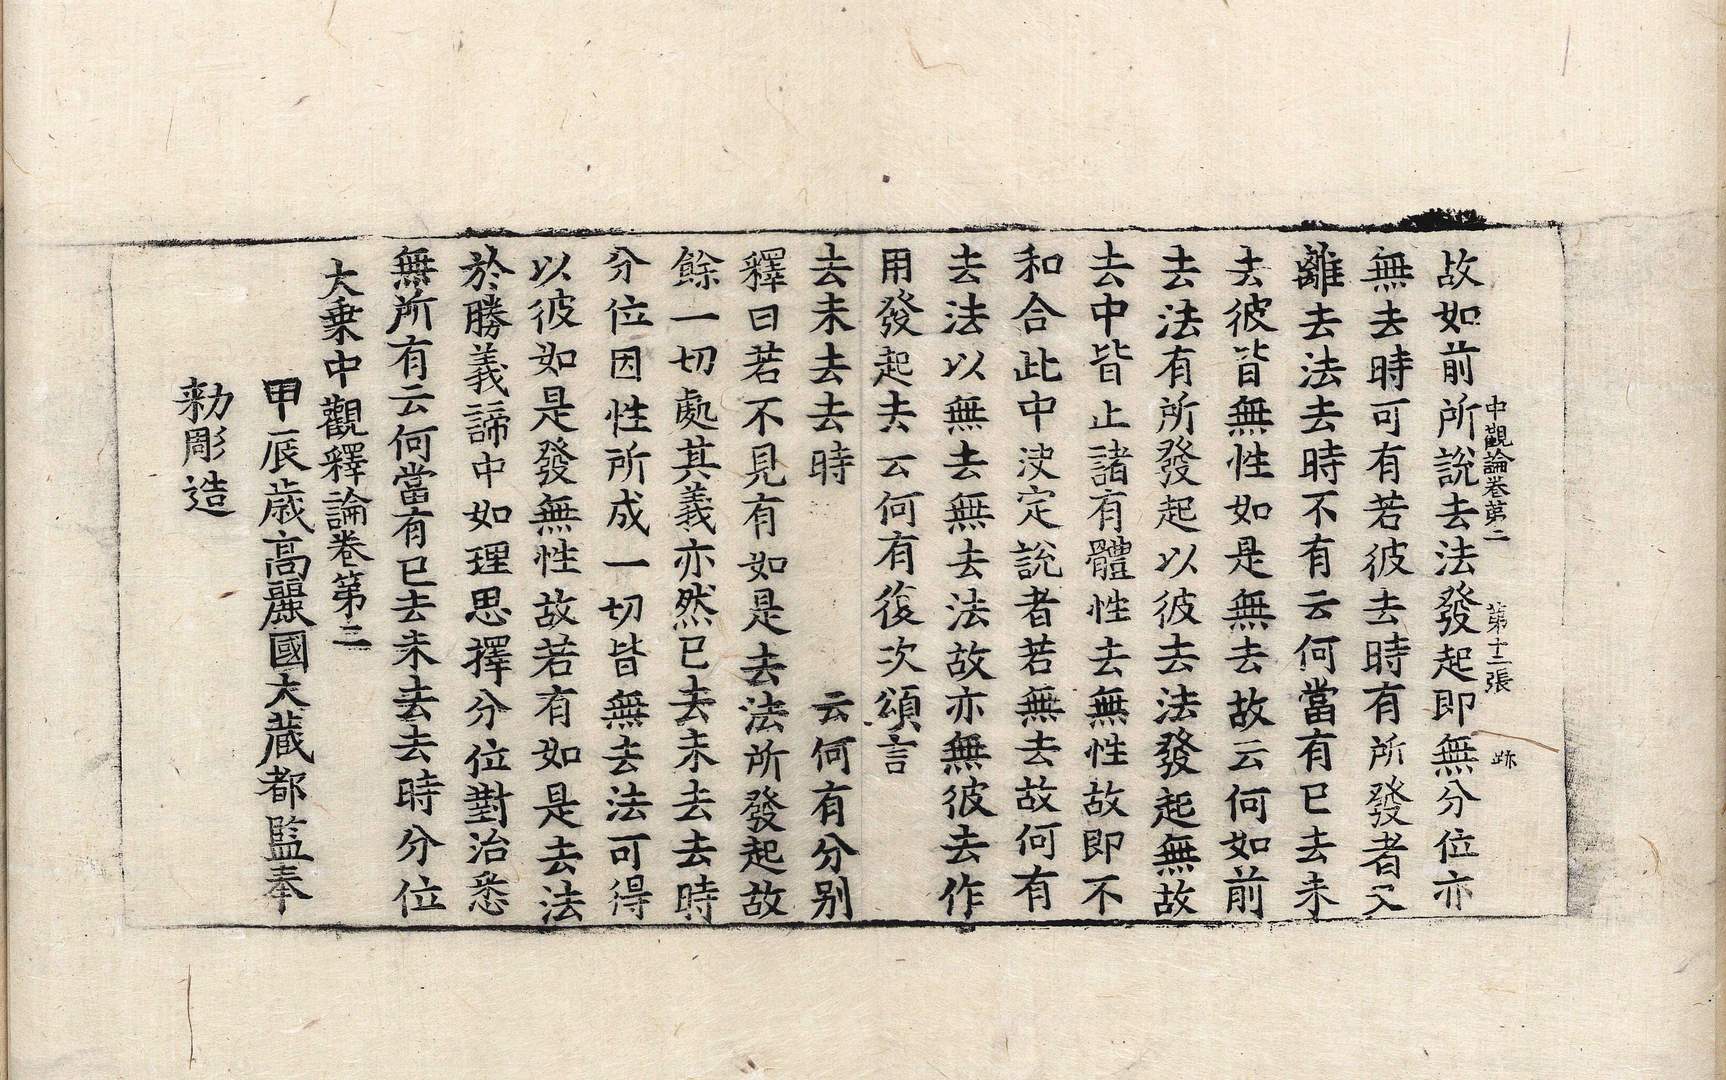 中觀論卷第二 第十二張 跡
故如前所說去法發起即無分位亦
無去時可有若彼去時有所發者又
離去法去時不有云何當有已去未
去彼皆無性如是無去故云何如前
去法有所發起以彼去法發起無故
去中皆止諸有體性去無性故即不
和合此中決定說者若無去故何有
去法以無去無去法故亦無彼去作
用發起去云何有復次頌言
去未去去時 云何有分別
釋曰若不見有如是去法所發起故
餘一切處其義亦然已去未去去時
分位因性所成一切皆無去法可得
以彼如是發無性故若有如是去法
於勝義諦中如理思擇分位對治悉
無所有云何當有已去未去去時分位
大乗中觀釋論卷第二
甲辰歲高麗國大藏都監奉
勑彫造